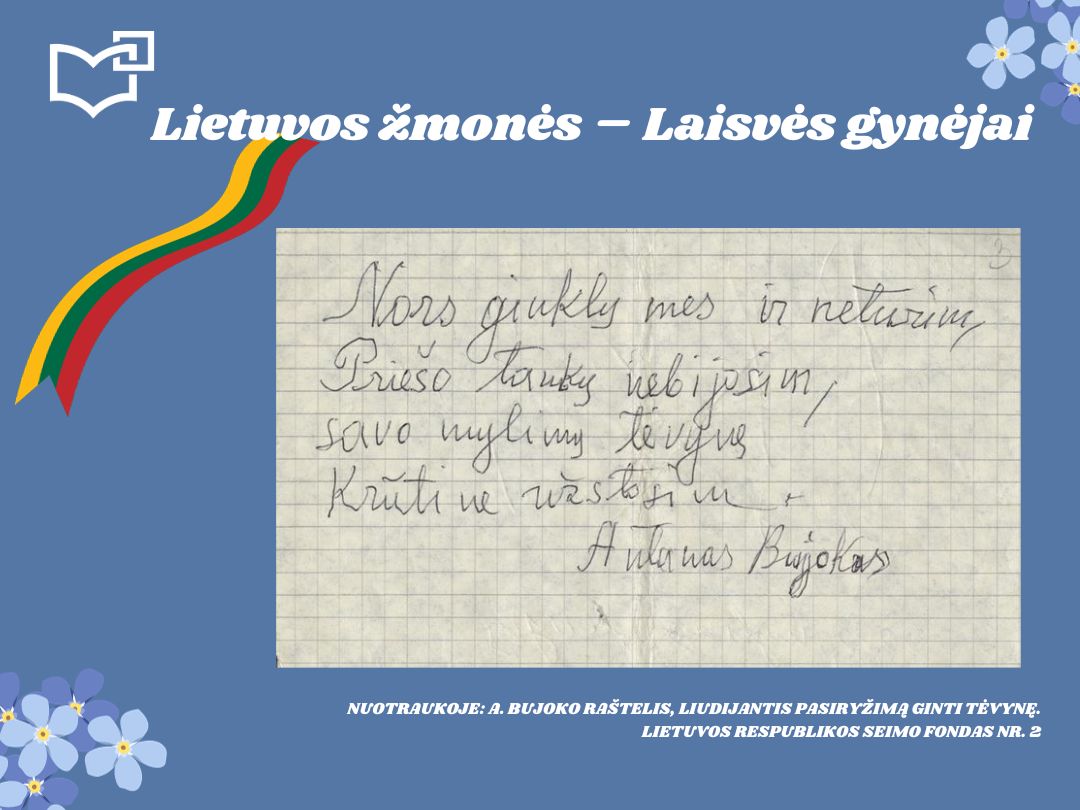 Lietuvos žmonės – Laisvės gynėjai
3
Nors ginklų mes ir neturim,
Priešo tankų nebijosim,
savo mylimą tėvynę
Krūtine užstosim.
Antanas Bujokas
NUOTRAUKOJE: A. BUJOKO RAŠTELIS, LIUDIJANTIS PASIRYŽIMĄ GINTI TĖVYNĘ.
LIETUVOS RESPUBLIKOS SEIMO FONDAS NR. 2